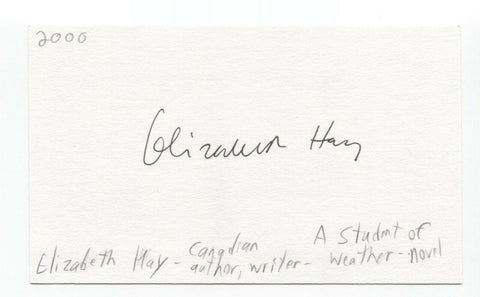 2000
Elizabeth Hay
Canadian A Student of
Elizabeth Hay - author, writer - weather - novel